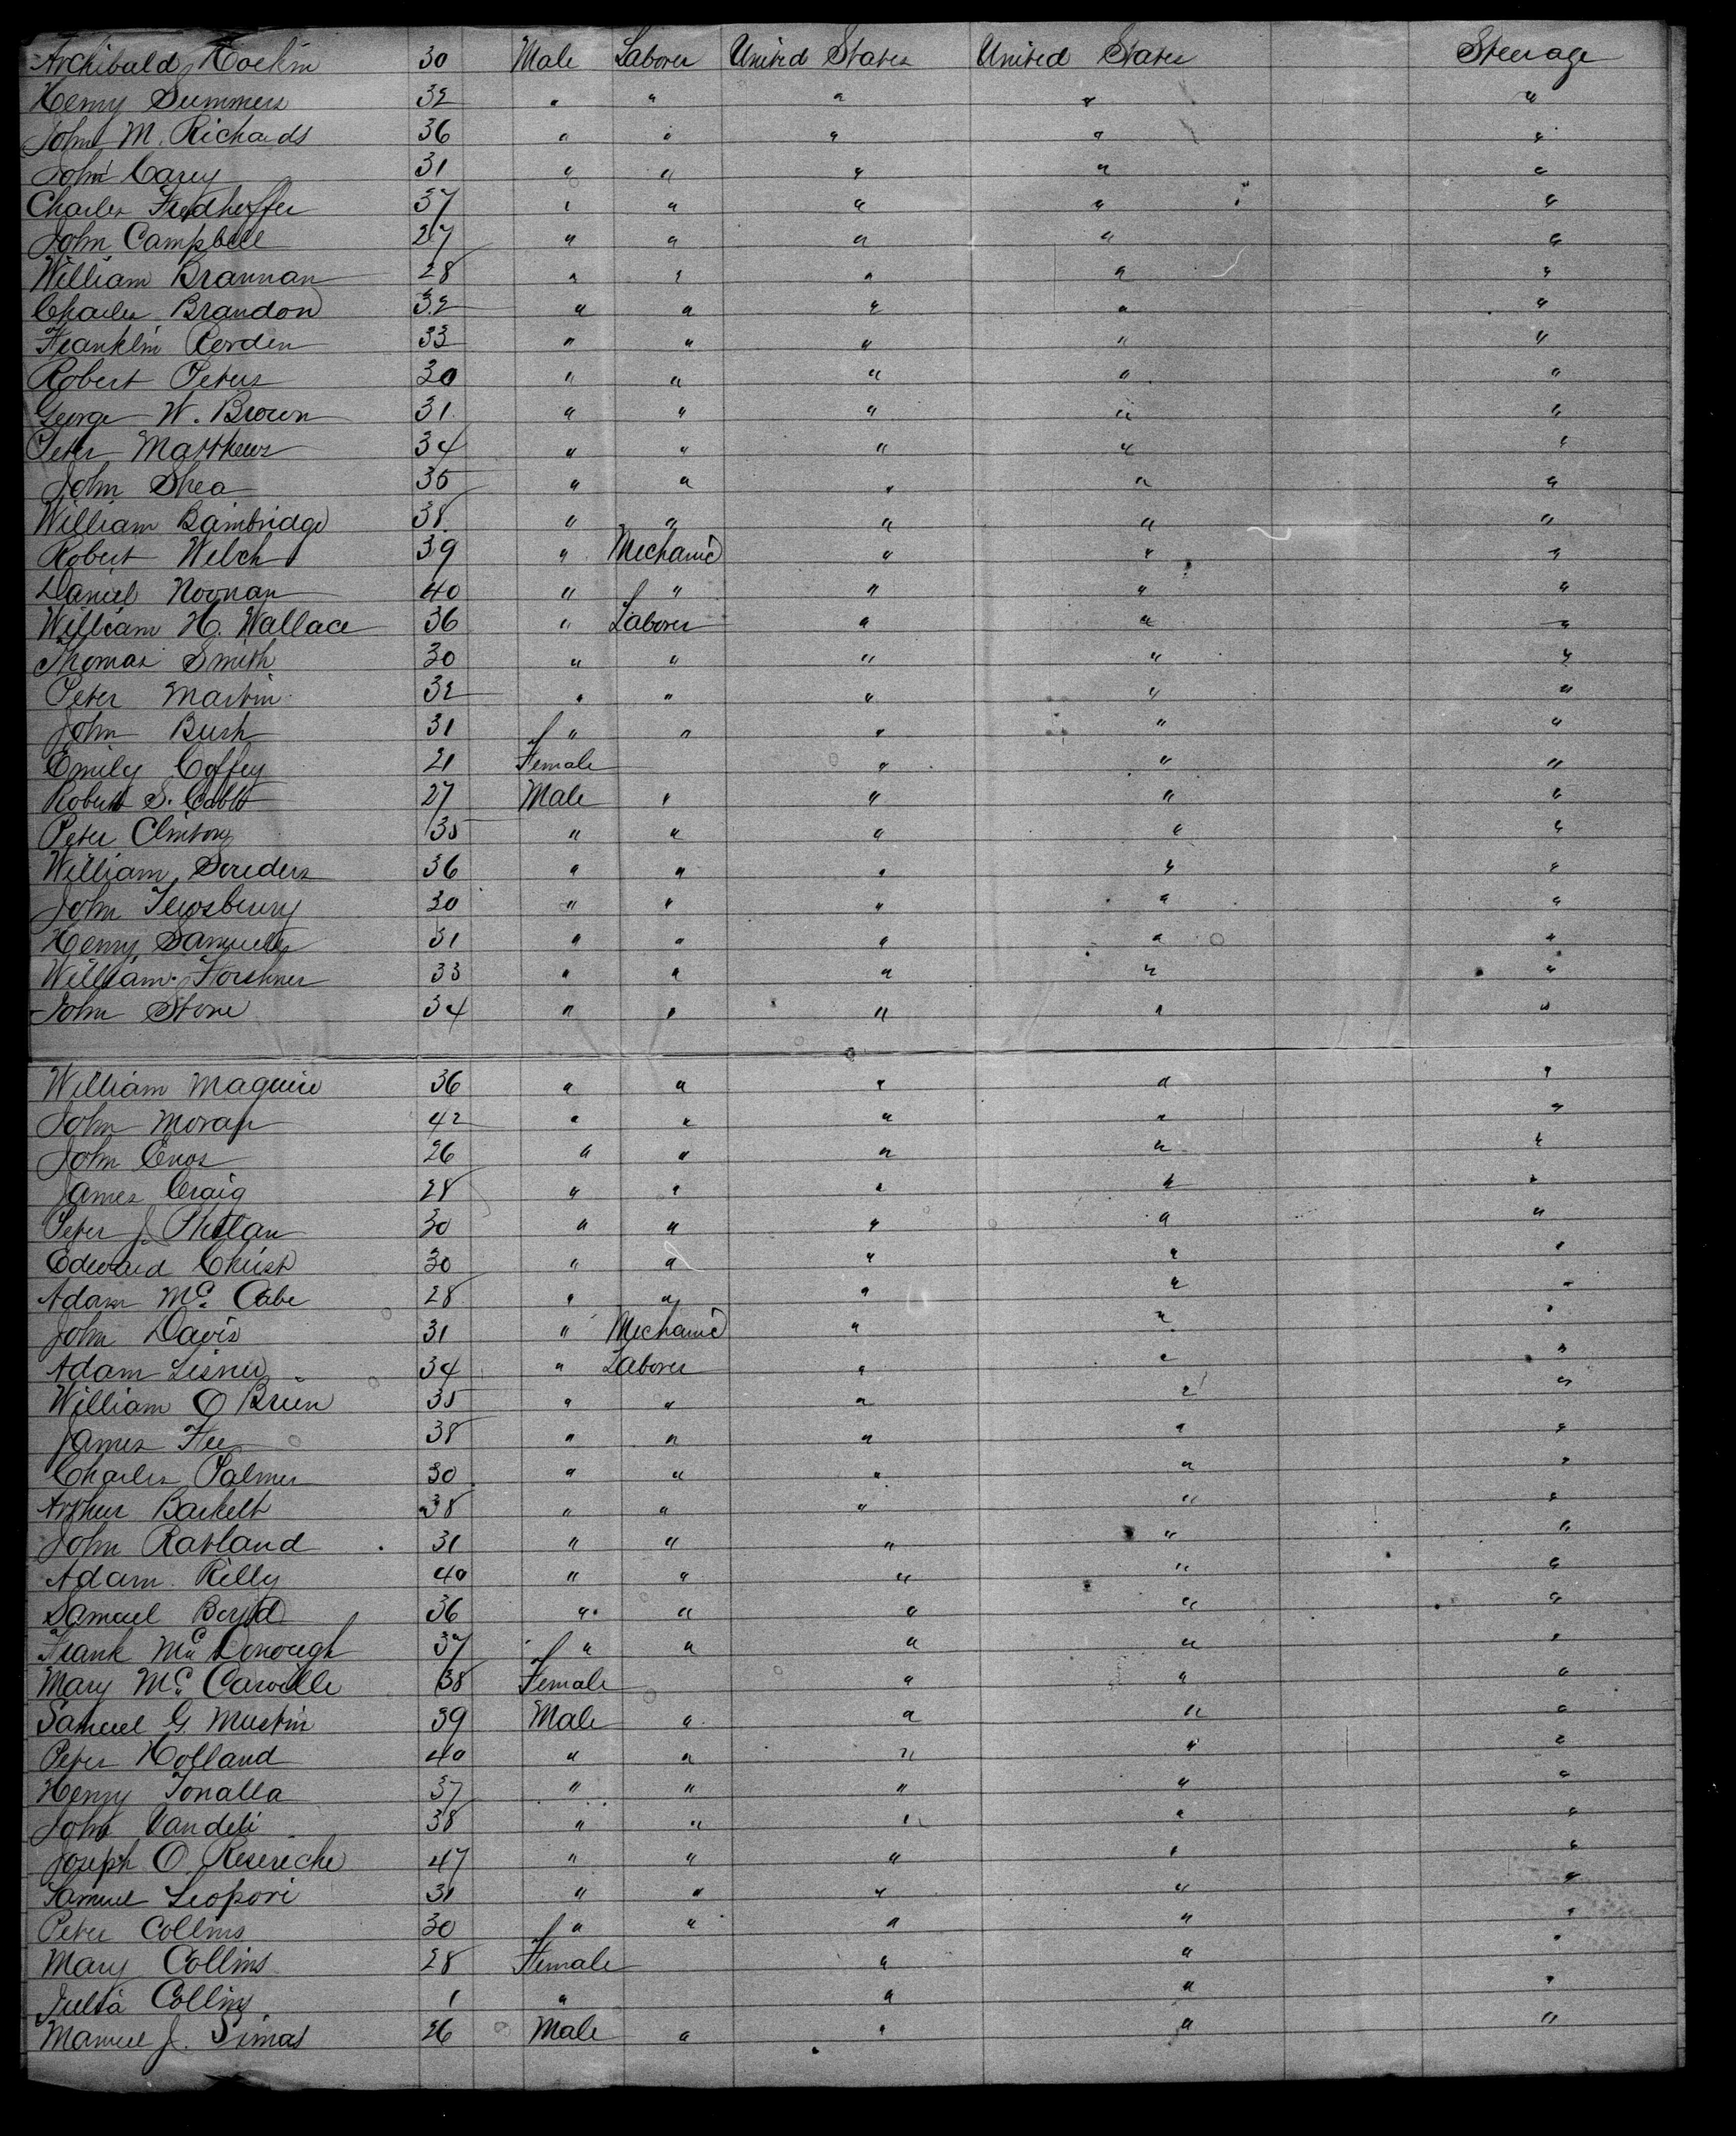 Archibald 30 Male Laborer United States United States Steerage
Henry Summers 32 " " " " "
John M. Richards 36 " " " " "
John Carey 31 " " " " "
Charles Friedhoffer 37 " " " " "
John Campbell 27 " " " " "
William Brannan 28 " " " " "
Charles Brandon 32 " " " " "
Franklin 33 " " " " "
Robert Peters 30 " " " " "
George W. Brown 31 " " " " "
Peter Matthews 34 " " " " "
John Shea 35 " " " " "
William Bainbridge 38 " " " " "
Robert Welch 39 " Mechanic " " "
Daniel Noonan 40 " " " " "
William H. Wallace 36 " Laborer " " "
Thomas Smith 30 " " " " "
Peter Martin 32 " " " " "
John Bush 31 " " " " "
Emily Coffey 21 Female " " "
Robert S. Cobb 27 Male " " " "
Peter Clinton 35 " " " " "
William Souders 36 " " " " "
John Tewsbury 30 " " " " "
Henry Samuels 31 " " " " "
William Forshner 33 " " " " "
John Stone 34 " " " " "
William Maguire 36 " " " " "
John Moran 42 " " " " "
John Enos 26 " " " " "
James Craig 28 " " " " "
Peter J. Phelan 30 " " " " "
Edward Christ 30 " " " " "
Adam Mc. Cabe 28 " " " " "
John Davis 31 " Mechanic " " "
Adam Lisner 34 " Laborer " " "
William O Brien 35 " " " " "
James Fee 38 " " " " "
Charles Palmer 30 " " " " "
Arthur 38 " " " " "
John Ratland 31 " " " " "
Adam Rilly 40 " " " " "
Samuel Boyd 36 " " " " "
Frank Mc Donough 37 " " " " "
Mary Mc. Carville 38 Female " " "
Samuel G. Mustin 39 Male " " " "
Peter Holland 40 " " " " "
Henry Tonalla 37 " " " " "
John 38 " " " " "
Joseph O. 47 " " " " "
Samuel Leopori 31 " " " " "
Peter Collins 30 " " " " "
Mary Collins 28 Female " " "
Julia Collins 1 " " " "
Manuel J. Simas 26 Male " " " "